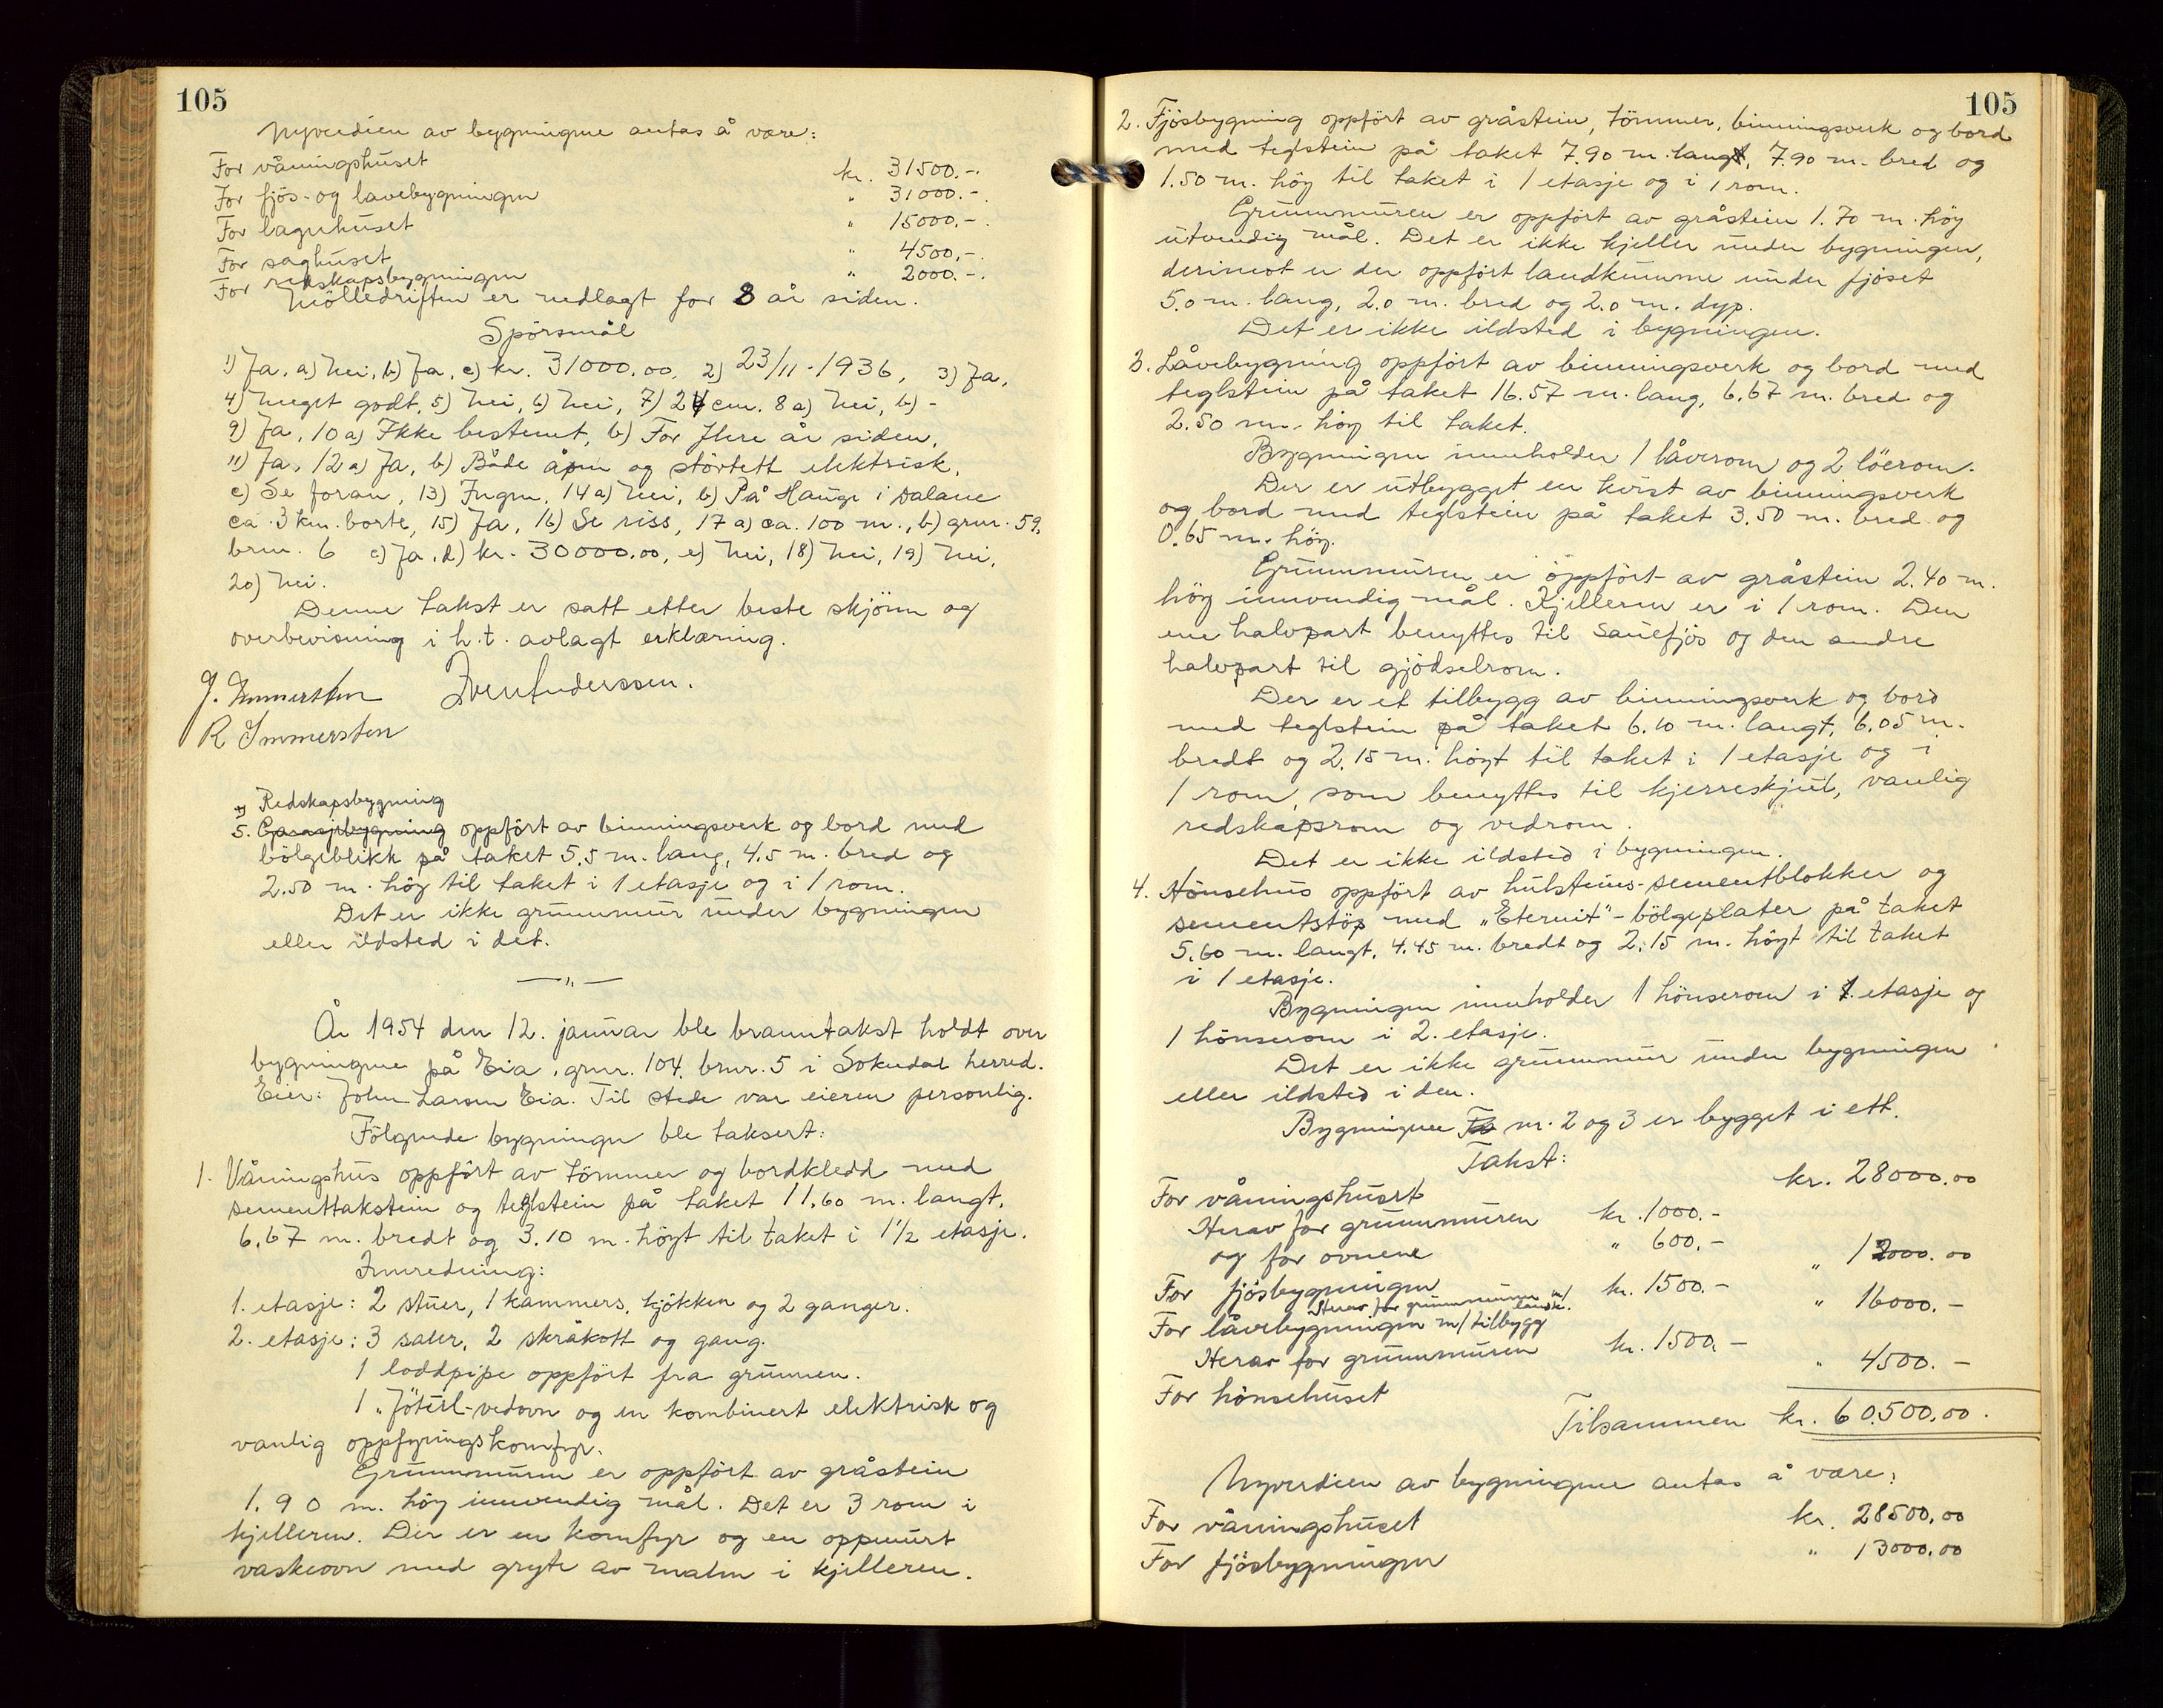 105
Nyverdien av bygningene antas å være:
For våningshuset kr. 31500.-
For fjös- og lavebygningen " 31000.-
For lagerhuset " 15000.-
For saghuset " 4500.-
For redskapsbygningen " 2000.-
Mölledriften er nedlagt for 8 år siden.
Spörsmål
1) Ja, a) Nei, b) Ja, c) kr. 31000.00, 2) 23/11-1936, 3) Ja,
4) Meget godt, 5) Nei, 6) Nei, 7) 24 cm. 8 a) Nei, b) -
9) Ja, 10 a) Ikke bestemt, b) For flere år siden,
11) Ja, 12 a) Ja, b) Både åpen og stövtett elektrisk,
c) Se foran, 13) Ingen, 14 a) Nei, b) På Hauge i Dalane
ca. 3 km. borte, 15) Ja, 16) Se riss, 17 a) ca. 100 m., b) grnr. 59,
brnr. 6 c) Ja, d) kr. 30000.00, e) Nei, 18) Nei, 19) Nei,
20) Nei.
Denne takst er satt etter beste skjönn og
overbevisning i h.t. avlagt erklæring.
J. Immerstein Iver Anderssen.
R Immerstein
Redskapsbygning
5. Garasjebygning oppfört av binningsverk og bord med
bölgeblikk på taket 5,5 m. lang, 4,5 m. bred og
2.50 m. höy til taket i 1 etasje og i 1 rom.
Det er ikke grunnmur under bygningen
eller ildsted i det.
— " —
År 1954 den 12. januar ble branntakst holdt over
bygningene på Eia, grnr. 104. brnr. 5 i Sokndal herred.
Eier: John Larsen Eia. Til stede var eieren personlig.
Fölgende bygninger ble taksert:
1. Våningshus oppfört av tömmer og bordkledd med
sementtakstein og teglstein på taket 11.60 m. langt,
6.67 m. bredt og 3.10 m. höyt til taket i 1½ etasje.
Innredning:
1. etasje: 2 stuer, 1 kammers, kjökken og 2 ganger.
2. etasje: 3 saler, 2 skråkott og gang.
1 loddpipe oppfört fra grunnen.
1 "Jötul-vedovn og en kombinert elektrisk og
vanlig oppfyringskomfyr.
Grunnmuren er oppfört av gråstein
1.90 m. höy innvendig mål. Det er 3 rom i
kjelleren. Der er en komfyr og en oppmurt
vaskeovn med gryte av malm i kjelleren.
105
2. Fjösbygning oppfört av gråstein, tömmer, binningsverk og bord
med teglstein på taket 7.90 m. lang, 7.90 m. bred og
1.50 m. höy til taket i 1 etasje og i 1 rom.
Grunnmuren er oppfört av gråstein 1.70 m. höy
utvendig mål. Det er ikke kjeller under bygningen,
derimot er der oppfört landkumme under fjöset
5.0 m. lang, 2.0 m. bred og 2.0 m. dyp.
Det er ikke ildsted i bygningen.
3. Låvebygning oppfört av binningsverk og bord med
teglstein på taket 16.57 m. lang, 6.67 m. bred og
2.50 m. höy til taket.
Bygningen inneholder 1 låverom og 2 löerom.
Der er utbygget en kvist av binningsverk
og bord med teglstein på taket 3.50 m. bred og
0.65 m. höy.
Grunnmuren er oppfört av gråstein 2.40 m.
höy innvendig mål. Kjelleren er i 1 rom. Den
ene halvpart benyttes til sauefjös og den andre
halvpart til gjödselrom.
Der er et tilbygg av binningsverk og bord
med teglstein på taket 6.10 m. langt, 6.05 m.
bredt og 2.15 m. höyt til taket i 1 etasje og i
1 rom, som benyttes til kjerreskjul, vanlig
redskapsrom og vedrom.
Det er ikke ildsted i bygningen.
4. Hönsehus oppfört av hulsteins-sementblokker og
sementstöp med "Eternit"-bölgeplater på taket
5.60 m. langt, 4.45 m. bredt og 2.15 m. höyt til taket
i 1 etasje.
Bygningen inneholder 1 hönserom i 1. etasje og
1 hönserom i 2. etasje.
Det er ikke grunnmur under bygningen
eller ildsted i den.
Bygningene nr. 2 og 3 er bygget i ett.
Takst:
For våningshuset kr. 28000.00
Herav for grunnmuren kr. 1000.-
og for ovnene " 600.-
For fjösbygningen " 12000.00
Herav for grunnmuren m/ landk. kr. 1500.-
For låvebygningen m/ tilbygg " 16000.-
Herav for grunnmuren kr. 1500.-
For hönsehuset " 4500.-
Tilsammen kr. 60.500.00.
Nyverdien av bygningene antas å være:
For våningshuset kr. 28500.00
For fjösbygningen " 13000.00